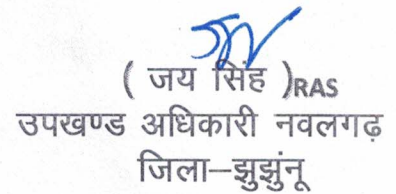 ( जय सिंह )RAS
उपखण्ड अधिकारी नवलगढ़
जिला–झुझुंनू